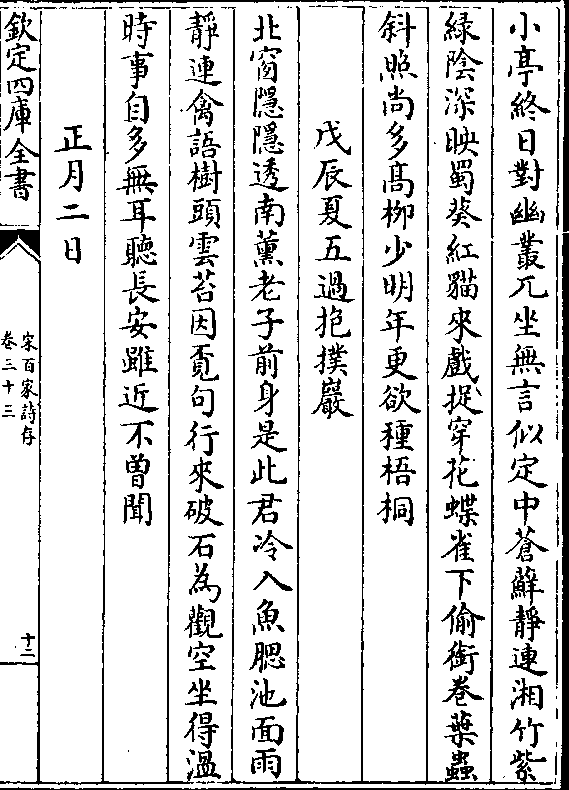 小亭終日對幽叢兀坐無言似定中蒼蘚靜連湘竹紫
綠陰深映蜀葵紅貓來戲捉穿花蝶雀下偷銜卷葉蟲
斜照尚多髙柳少明年更欲種梧桐
戊辰夏五過抱撲巖
北窗隱隱透南薰老子前身是此君冷入魚腮池面雨
靜連禽語樹頭雲苔因覔句行來破石為觀空坐得溫
時事自多無耳聽長安雖近不曾聞
正月二日
欽定四庫全書
宋百家詩存
卷三十三
十二